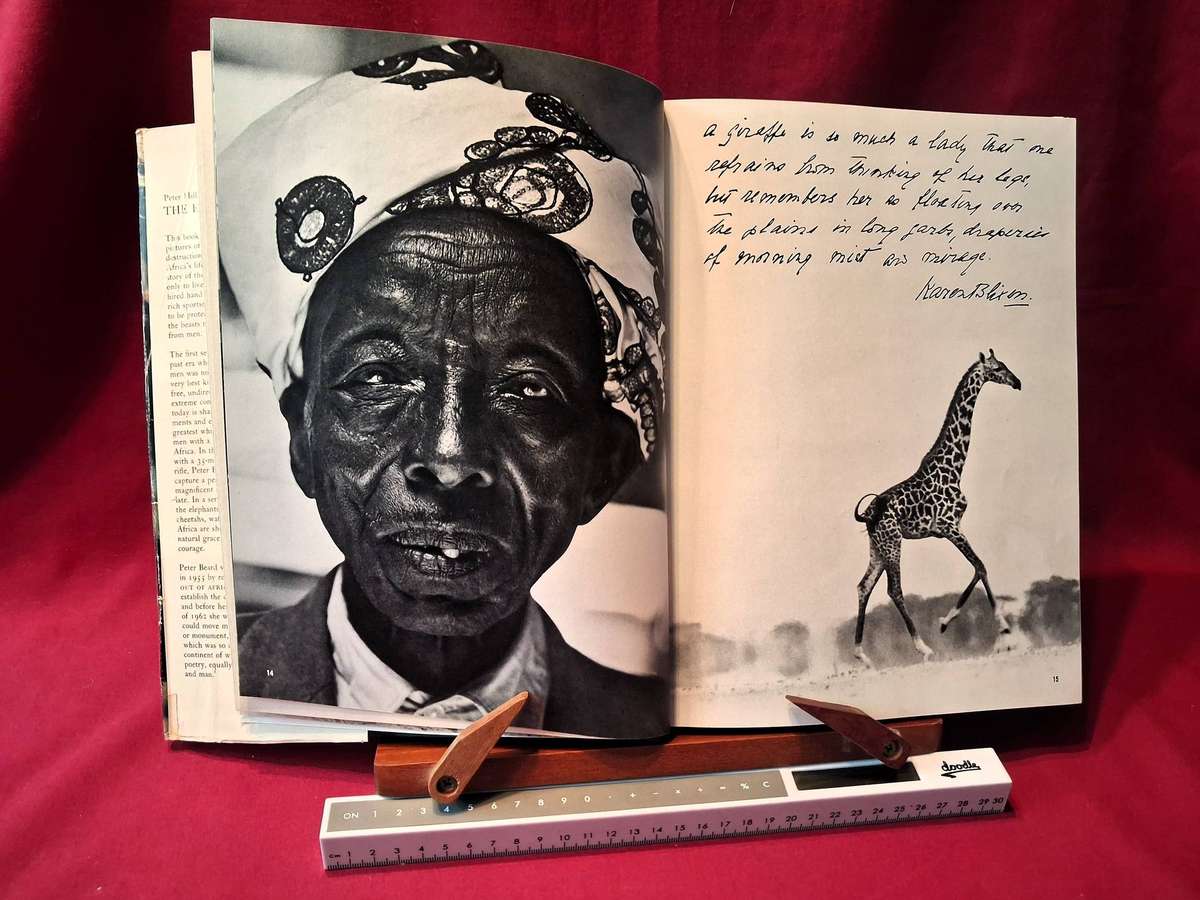 Peter Hill
THE
This book
pictures of
destruction
Africa's life
story of the
only to live
hired hand
rich sports
to be prote
the beasts
from men.
The first se
past era wh
men was no
very best
free, undire
extreme con
today is sha
ments and
greatest wh
men with a
Africa. In th
with a 35-m
rifle, Peter B
capture a pe
magnificent
late. In a ser
the elephant
cheetahs, wat
Africa are sh
natural grace
courage.
Peter Beard
in 1955 by
OUT OF AFRI
establish the
and before he
of 1962 she
could move
or monument,
which was so
continent of
poetry, equally
and man."
14
a giraffe is so much a lady that one
refrains from thinking of her legs,
but remembers her as floating over
the plains in long garbs, draperies
of morning mist mirage.
Karen Blixen.
15
doodle
ON 1 2 3 4 5 6 7 8 9 0 · + − × ÷ = % C
cm 1 2 3 4 5 6 7 8 9 10 11 12 13 14 15 16 17 18 19 20 21 22 23 24 25 26 27 28 29 30